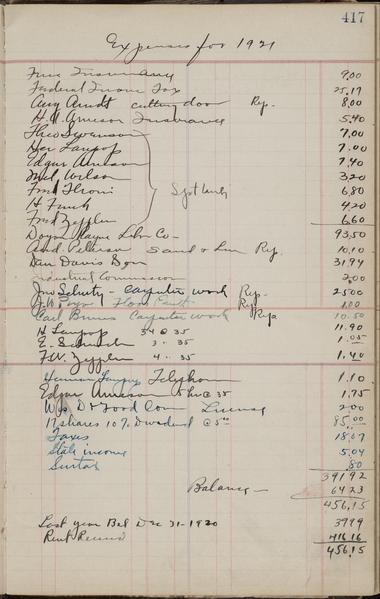 417
Expenses for 1921
Fire Insurance 9.00
Federal Income Tax 25.17
Aug Arndt cutting door Rep. 8.00
H.A. Arneson Insurance 5.40
Theo Swenson 7.00
Her Langop 7.00
Edgar Arneson 7.40
Wilson 3.20
Fred 6.80
H 4.20
Fred Zeppler 6.60
Wayne Lbr Co 93.50
And Peterson Sand & Rep. 10.10
Dan Davis & Son 31.94
Industrial Commission 2.00
Jno Schutz - Carpenter work Rep. 25.00
Rep 1.00
Carl Bruns Carpenter work Rep 10.50
H Langop 34 @ 35 11.90
E. 3 .. 35 1.05
F.W. Zeppler 4 .. 35 1.40
Herman Langop Telephone 1.10
Edgar Arneson 5 hrs @ 35 1.75
Wis D & Food Com License 2.00
17 shares 10% Dividend @ 5.00 85.00
Taxes 18.07
State income 5.04
Surtax .80
391.92
Balance 64.23
456.15
Last year Bal Dec 31-1920 39.99
Rent Received 416.16
456.15